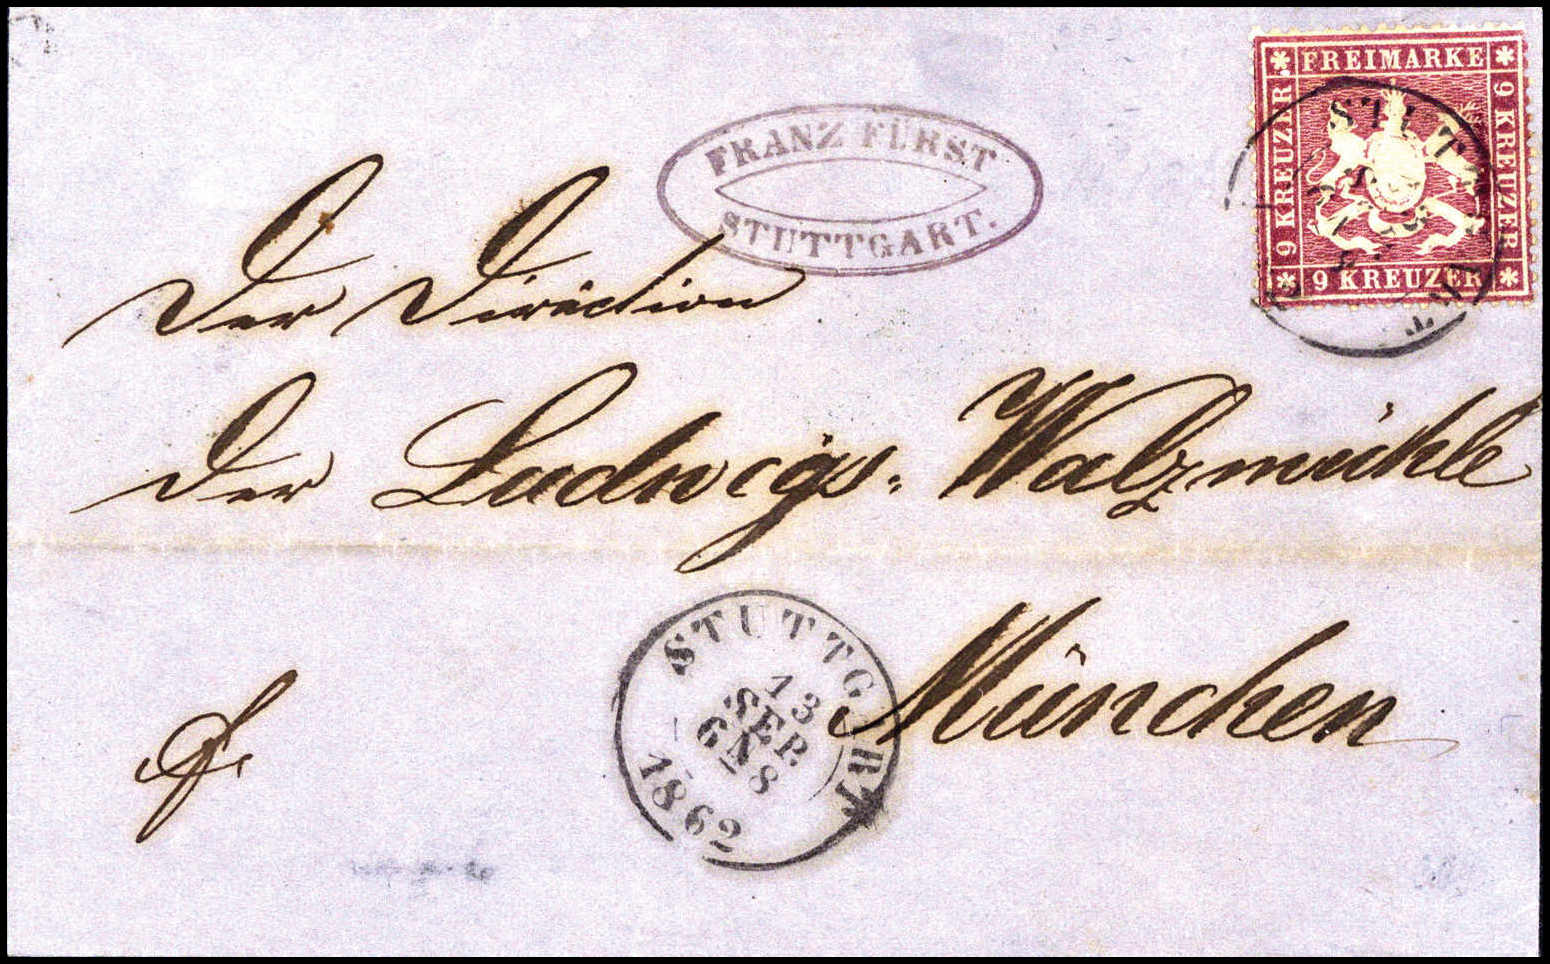 FREIMARKE
9 KREUZER.
9 KREUZER
9 KREUZER
FRANZ FÜRST
STUTTGART.
Der Direction
der Ludwigs-Walzmühle
München
STUTTGART
13
SEP.
6 N 8
1862